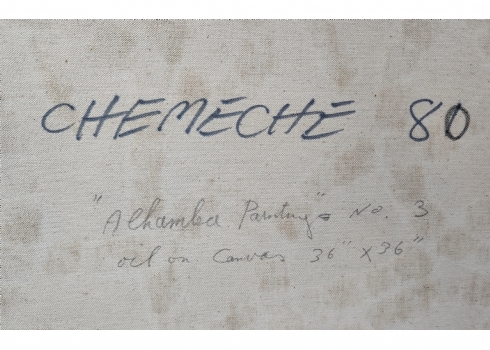 CHEMECHE 80
"Alhambra Painting" No. 3
oil on Canvas 36" x 36"